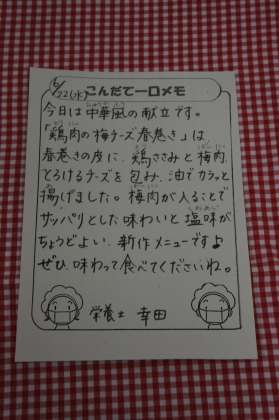 5/22(水) こんだて一口メモ
今日は中華風の献立です。
「鶏肉の梅チーズ春巻き」は
春巻きの皮に、鶏ささみと梅肉、
とろけるチーズを包み、油でカラッと
揚げました。梅肉が入ることで
サッパリとした味わいと塩味が
ちょうどよい、新作メニューです♪
ぜひ、味わって食べてくださいね。
栄養士 幸田